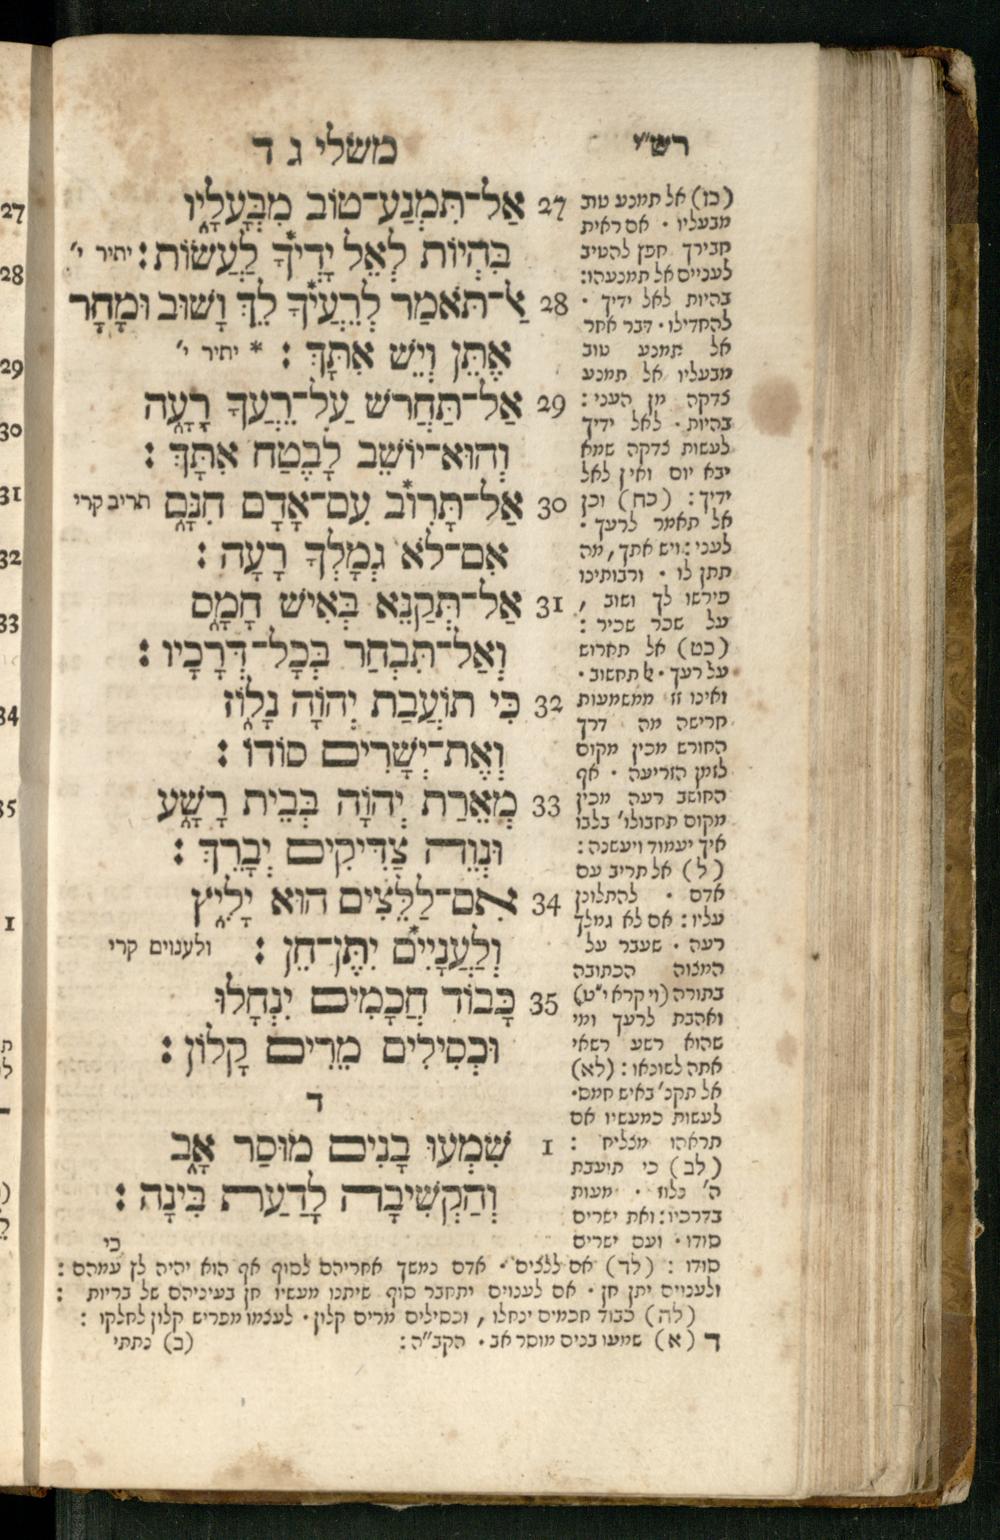 רש״י
משלי ג ד
27 אַל־תִּמְנַע־טוֹב מִבְּעָלָיו
בִּהְיוֹת לְאֵל יָדֶיךָ לַעֲשׂוֹת׃ יתיר י׳
28 אַל־תֹּאמַר לְרֵעֲיךָ לֵךְ וָשׁוּב וּמָחָר
אֶתֵּן וְיֵשׁ אִתָּךְ׃ * יתיר י׳
29 אַל־תַּחֲרֹשׁ עַל־רֵעֲךָ רָעָה
וְהוּא־יוֹשֵׁב לָבֶטַח אִתָּךְ׃
30 אַל־תָּרִוֹב עִם־אָדָם חִנָּם תריב קרי
אִם־לֹא גְמָלְךָ רָעָה׃
31 אַל־תְּקַנֵּא בְּאִישׁ חָמָס
וְאַל־תִּבְחַר בְּכָל־דְּרָכָיו׃
32 כִּי תוֹעֲבַת יְהוָֹה נָלוֹז
וְאֶת־יְשָׁרִים סוֹדוֹ׃
33 מְאֵרַת יְהוָֹה בְּבֵית רָשָׁע
וּנְוֵה צַדִּיקִים יְבָרֵךְ׃
34 אִם־לַלֵּצִים הוּא יָלִיץ
וְלַעֲנָיִים יִתֶּן־חֵן׃ ולענוים קרי
35 כָּבוֹד חֲכָמִים יִנְחָלוּ
וּכְסִילִים מֵרִים קָלוֹן׃
ד
1 שִׁמְעוּ בָנִים מוּסַר אָב
וְהַקְשִׁיבָה לָדַעַת בִּינָה׃
כי
(כז) אל תמנע טוב
מבעליו · אם ראית
חבירך חפץ להטיב
לעניים אל תמנעהו:
בהיות לאל ידיך ·
להחדילו · דבר אחר
אל תמנע טוב
מבעליו אל תמנע
צדקה מן העני:
בהיות · לאל ידיך
לעשות צדקה שמא
יבא יום ואין לאל
ידיך: (כח) וכן
אל תאמר לרעך ·
לעני: ויש אתך, מה
תתן לו · ורבותינו
פירשו לך ושוב,
על שכר שכיר:
(כט) אל תחרוש
על רעך · אל תחשוב ·
ואינו זז ממשמעות
חרישה מה דרך
החורש מכין מקום
לזמן הזריעה · אף
החושב רעה מכין
מקום תחבולו׳ בלבו
איך יעמוד ויעשנה:
(ל) אל תריב עם
אדם · להתלונן
עליו: אם לא גמלך
רעה · שעבר על
המצוה הכתובה
בתורה (ויקרא י״ט)
ואהבת לרעך ומי
שהוא רשע רשאי
אתה לשונאו: (לא)
אל תקנ׳ באיש חמס ·
לעשות כמעשיו אם
תראהו מצליח:
(לב) כי תועבת
ה׳ נלוז · מעות
בדרכיו: ואת ישרים
סודו · ועם ישרים
סודו: (לד) אם ללצים · אדם נמשך אחריהם לסוף אף הוא יהיה לץ עמהם:
ולענוים יתן חן · אם לענוים יתחבר סוף שיתנו מעשיו חן בעיניהם של בריות:
(לה) כבוד חכמים ינחלו, וכסילים מרים קלון · לעצמו מפריש קלון לחלקו:
ד (א) שמעו בנים מוסר אב · הקב״ה: (ב) נתתי